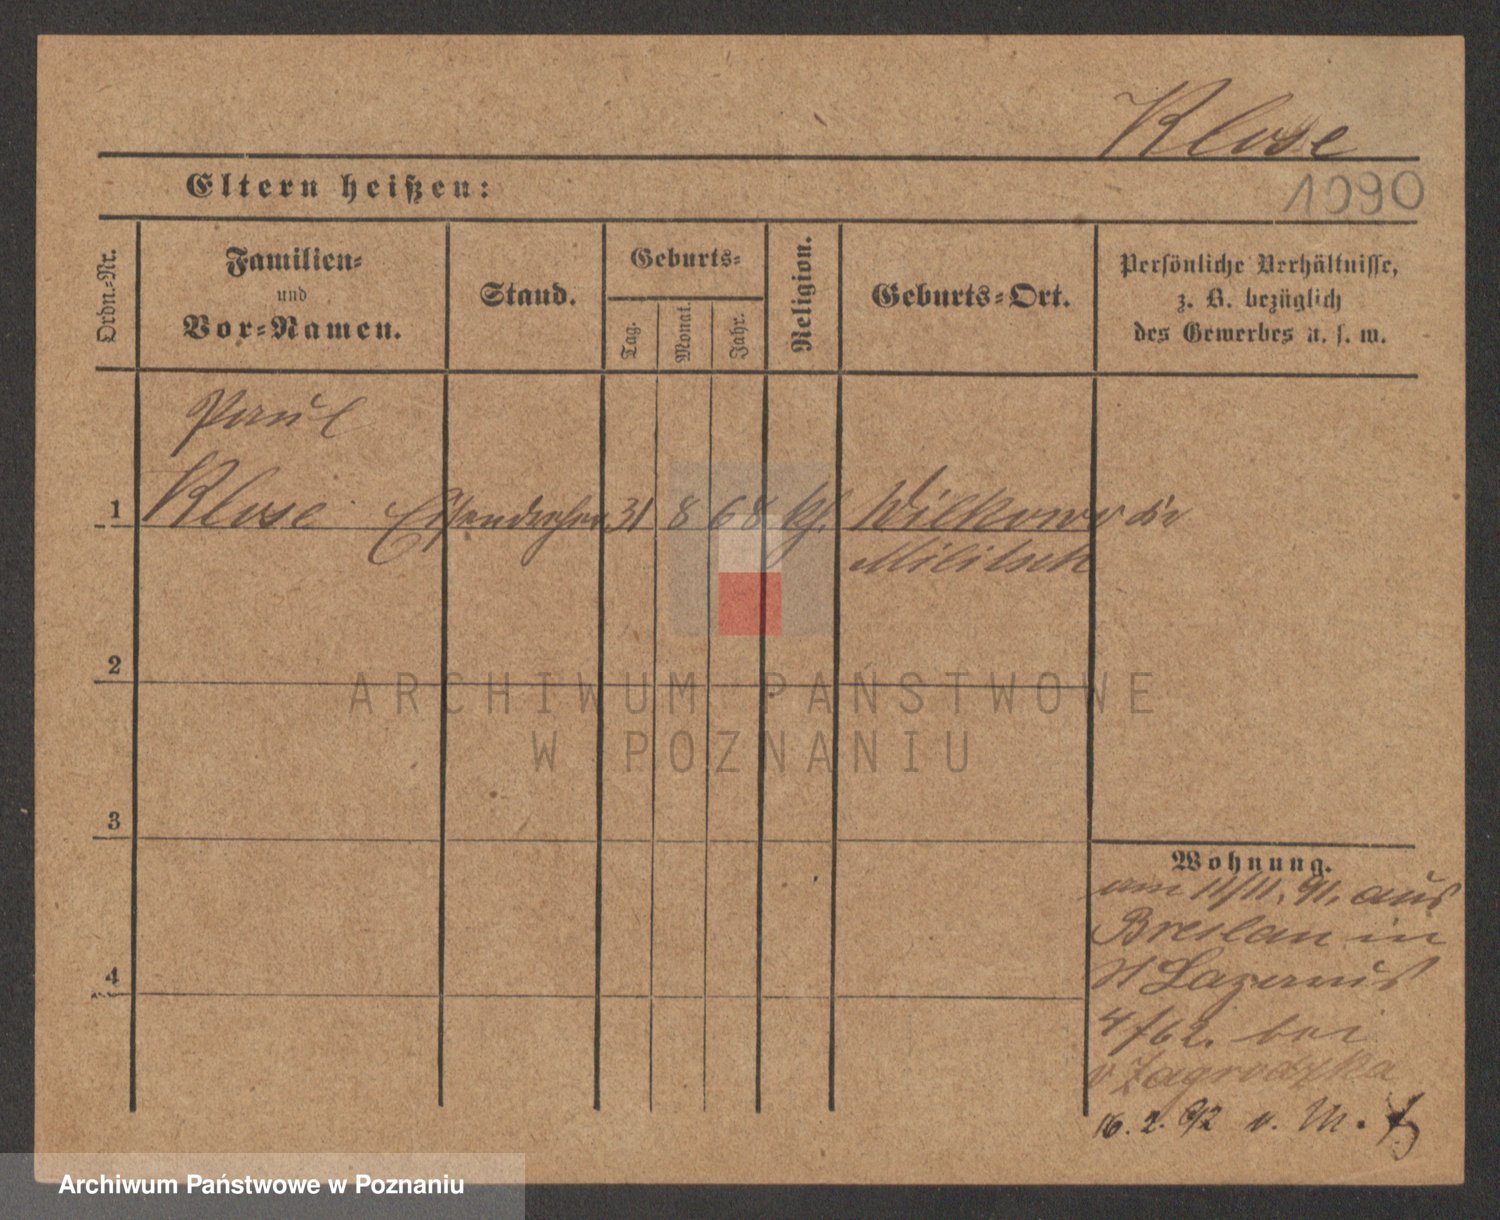 Klose
Eltern heißen:
1090
Ordn.-Nr.
Familien-
und
Vor-Namen.
Stand.
Geburts-
Tag.
Monat.
Jahr.
Religion.
Geburts-Ort.
Persönliche Verhältnisse,
z. B. bezüglich
des Gewerbes u. s. w.
Paul
1 Klose Eisendreher 31 8 68 kh. Wilkowo
Militsch
2
ARCHIWUM PAŃSTWOWE
W POZNANIU
3
Wohnung.
am 11/11. 91. aus
Breslau in
St Lazarus
4/62. bei
v Zagrodzka
4
16. 2. 92 v. M.
Archiwum Państwowe w Poznaniu